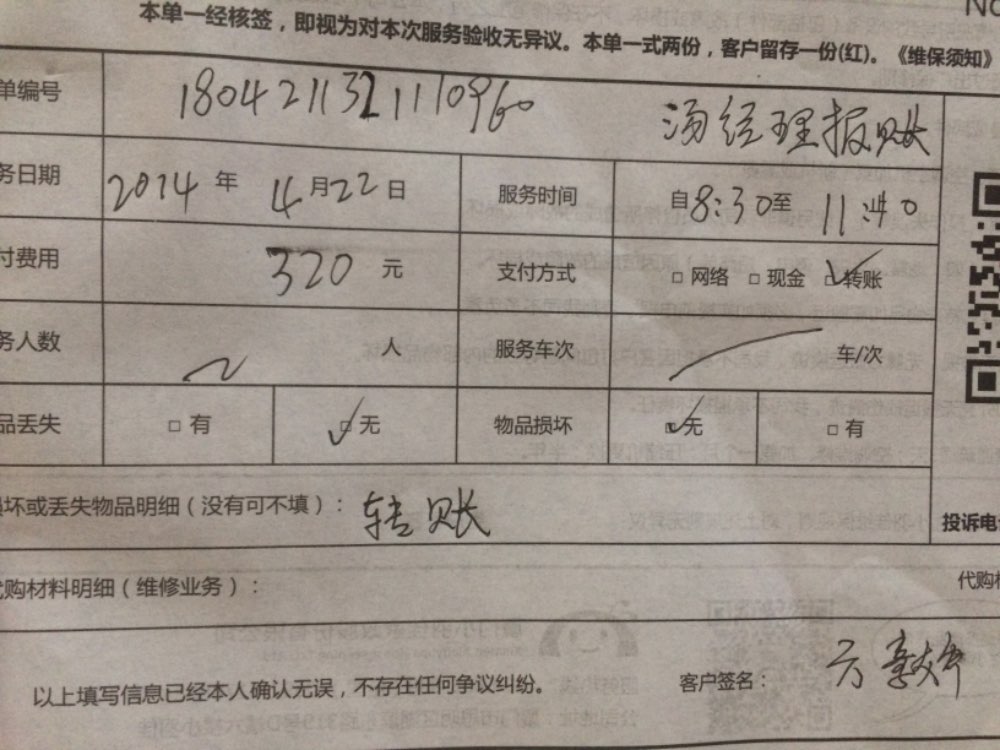 No
本单一经核签，即视为对本次服务验收无异议。本单一式两份，客户留存一份(红)。《维保须知》
单编号 1804211321110960 汤经理报账
务日期 2014 年 4月22日 服务时间 自8:30至 11:40
付费用 320 元 支付方式 □ 网络 □ 现金 ☑ 转账
务人数 2 服务车次 车/次
品丢失 □ 有 ☑ 无 物品损坏 ☑ 无 □ 有
坏或丢失物品明细（没有可不填）： 转账
投诉电
购材料明细（维修业务）：
代购
以上填写信息已经本人确认无误，不存在任何争议纠纷。 客户签名：